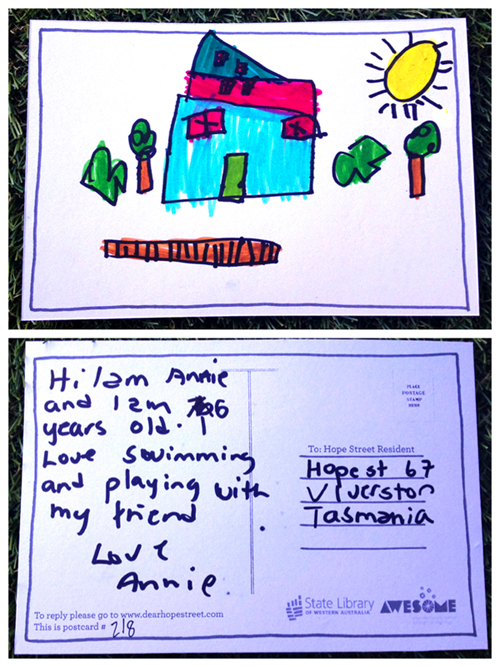 Hi I am Annie
and I am 6
years old. I
Love swimming
and playing with
my friend
Love
Annie
To reply please go to www.dearhopestreet.com
This is postcard # 218
PLACE
POSTAGE
STAMP
HERE
To: Hope Street Resident
Hope st 67
Viverston
Tasmania
State Library
OF WESTERN AUSTRALIA
AWESOME